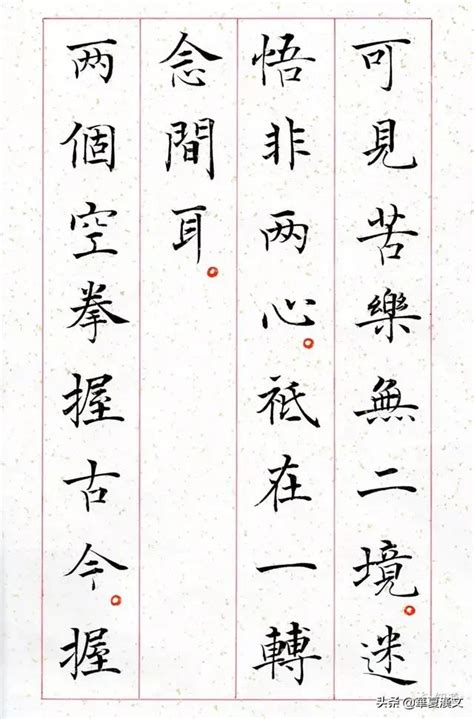 可見苦樂無二境。迷
悟非两心。祗在一轉
念間耳。
两個空拳握古今。握
头条@華夏漢文